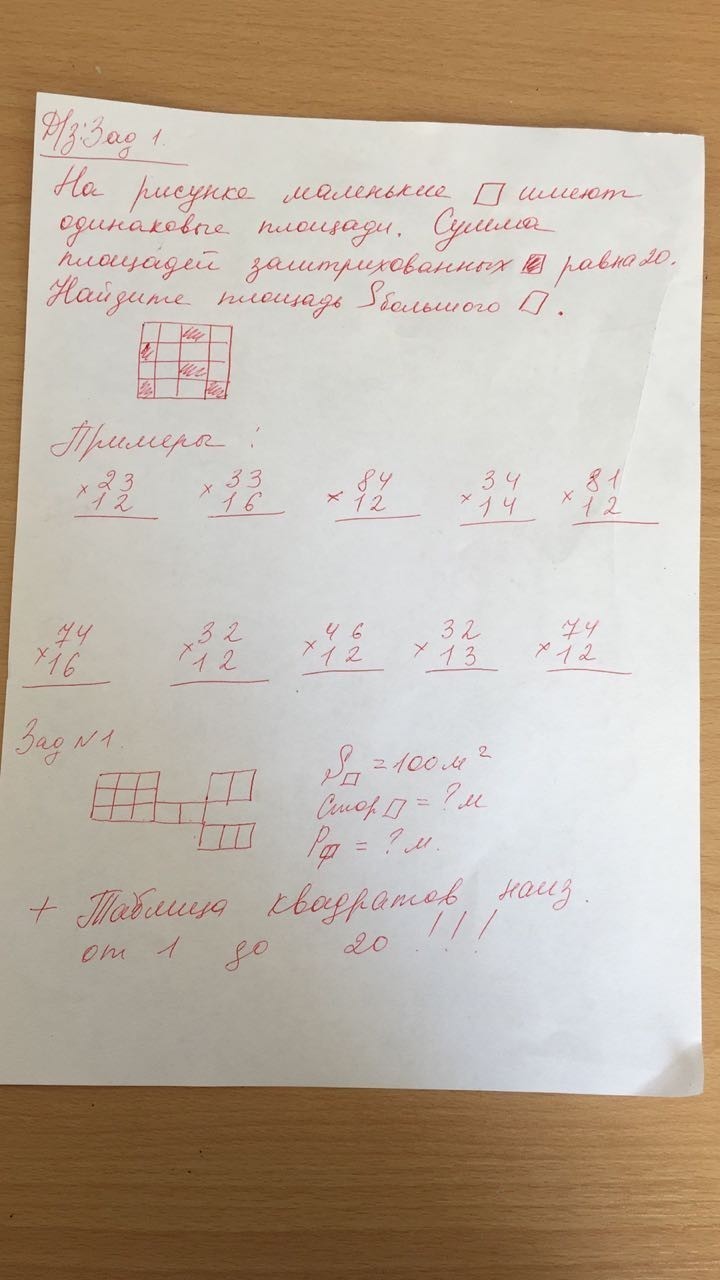 Д/з: Зад 1.
На рисунке маленькие □ имеют
одинаковые площади. Сумма
площадей заштрихованных равна 20.
Найдите площадь S большого □.
Примеры:
×23 ×33 ×84 ×34 ×81
12 16 12 14 12
×74 ×32 ×46 ×32 ×74
16 12 12 13 12
Зад N1.
S□ = 100 м²
Стор □ = ? м
Pф = ? м.
+ Таблица квадратов наиз.
от 1 до 20!!!